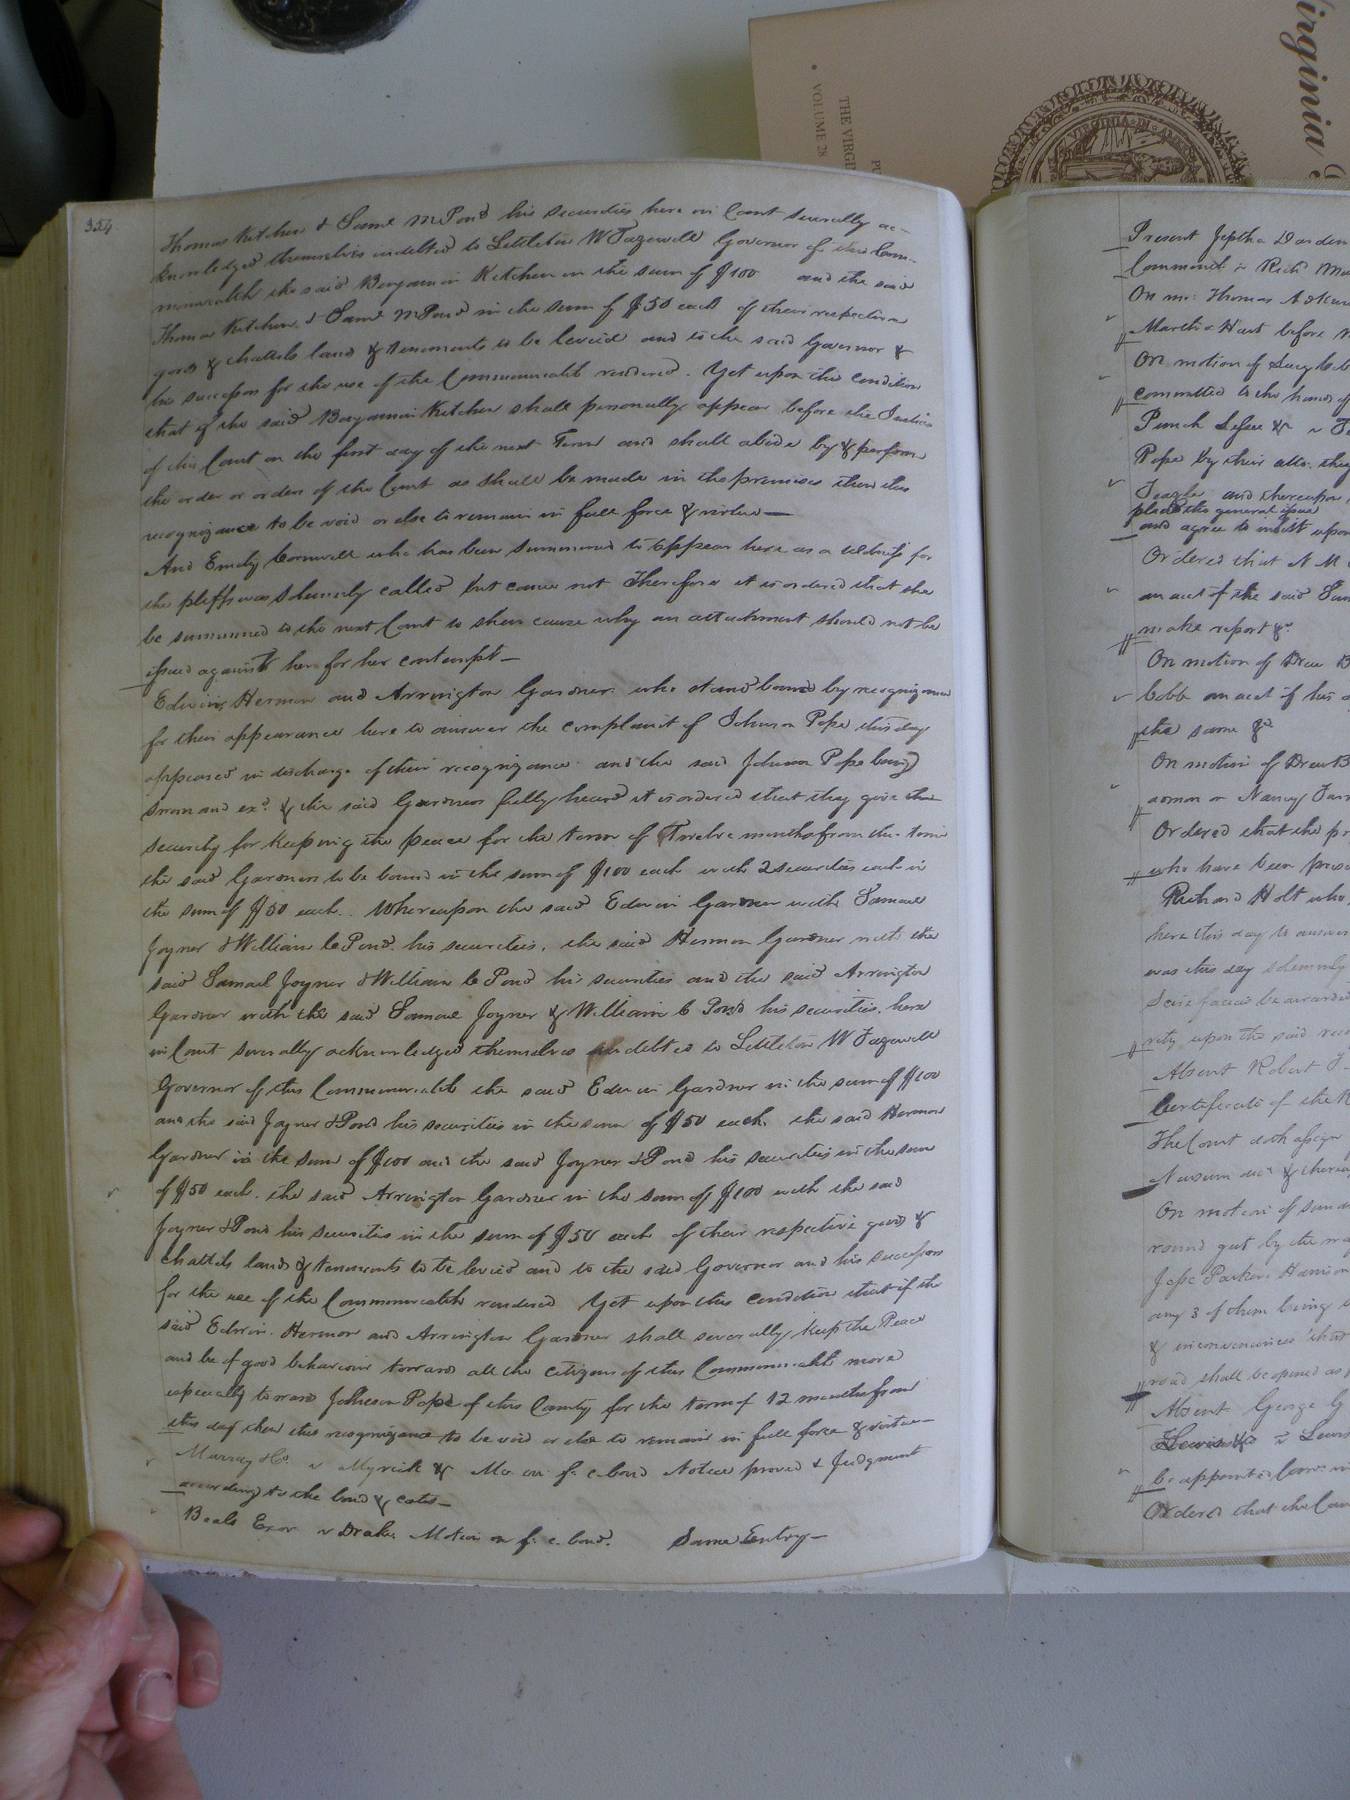 Virginia
THE VIRGI
VOLUME 28
354
Thomas Kitchen & Saml M Pond his securities here in Court severally ac-
knowledged themselves indebted to Littleton W Tazewell Governor of this Com-
monwealth the said Benjamin Kitchen in the sum of $100 and the said
Thomas Kitchen & Saml M Pond in the sum of $50 each of their respective
goods & chattels land & tenements to be levied and to the said Governor &
his successors for the use of the Commonwealth rendered. Yet upon this condition
that if the said Benjamin Kitchen shall personally appear before the Justices
of this Court on the first day of the next Term and shall abide by & perform
the order or orders of the Court as shall be made in the premises then this
recognizance to be void or else to remain in full force & virtue—
And Emily Cornwell who has been summoned to appear here as a witness for
the pltff was solemnly called but came not Therefore it is ordered that she
be summoned to the next Court to shew cause why an attachment should not be
issued against her for her contempt—
Edwin, Hermon and Arrington Gardner who stand bound by recognizance
for their appearance here to answer the complaint of Johnson Pope this day
appeared in discharge of their recognizance and the said Johnson Pope being
sworn and exd. & the said Gardners fully heard it is ordered that they give their
security for keeping the peace for the term of Twelve months from this time
the said Gardners to be bound in the sum of $100 each with 2 securities each in
the sum of $50 each. Whereupon the said Edwin Gardner with Samuel
Joyner & William C Pond his securities, the said Hermon Gardner with the
said Samuel Joyner & William C Pond his securities and the said Arrington
Gardner with the said Samuel Joyner & William C Pond his securities, here
in Court severally acknowledged themselves indebted to Littleton W Tazewell
Governor of this Commonwealth the said Edwin Gardner in the sum of $100
and the said Joyner & Pond his securities in the sum of $50 each. the said Hermon
Gardner in the sum of $100 and the said Joyner & Pond his securities in the sum
of $50 each. the said Arrington Gardner in the sum of $100 with the said
Joyner & Pond his securities in the sum of $50 each of their respective goods &
chattels lands & tenements to be levied and to the said Governor and his successors
for the use of the Commonwealth rendered Yet upon this condition that if the
said Edwin. Hermon and Arrington Gardner shall severally keep the Peace
and be of good behaviour toward all the citizens of this Commonwealth more
especially toward Johnson Pope of this County for the term of 12 months from
this day then this recognizance to be void or else to remain in full force & virtue—
Murray & Co. v Myrick & Mo on f. c. bond Notice proved & Judgment
according to the bond & costs—
Beals Exor v Drake Motion on f. c. bond. Same Entry—
Present Jeptha Darden
Commond v Richd
On mo: Thomas A
Martha Hart before
On motion of
committed to the hands of
Punch Lessee & v
Pope by their atto. they
and thereupon
pleads the general issue
and agree to upon
Ordered that N M
an acct of the said
make report &c
On motion of Drew B
Cobb an acct of his
the same &c
On motion of Drew B
or Nancy
Ordered that the pr
who have been
Richard Holt who
here this day to answer
was this day solemnly
Scire facias be awarded
upon the said
Absent Robert
Certificate of the
The Court doth assign
Newsum & there
On motion of
round gut by the
Jesse Parker, Harrison
any 3 of them being
& inconveniences that
road shall be opened as
Absent George G
v Lewis
be appointed
Ordered that the